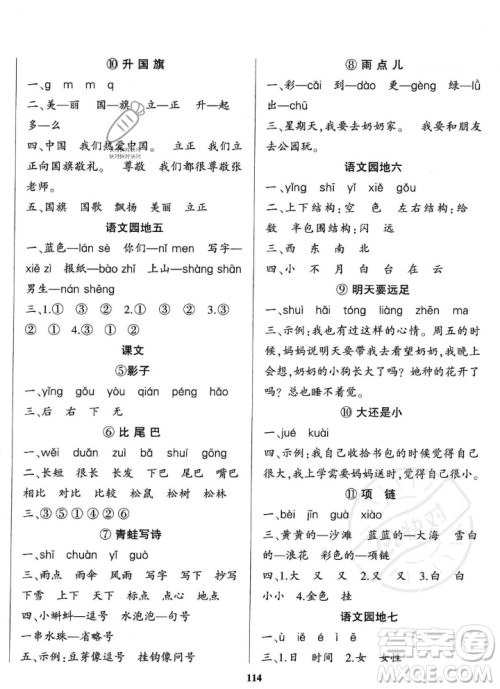 ⑩ 升 国 旗
一、g m m q
二、美—丽 国—旗 立—正 升—起
多—么
四、中国 我们热爱中国。 我们向
国旗敬礼。 我们都很尊敬张
老师。
五、国旗 国歌 飘扬 美丽 立正
语文园地五
一、蓝色—lán sè 你们—nǐ men 写字—
xiě zì 报纸—bào zhǐ 上山—shàng shān
男生—nán shēng
三、1.① ③ ② 2.① ② ③ 3.① ③
② ① ② 4.① ③ ② ③ ②
课文
⑤影子
一、yǐng gǒu yòu qián péng hǎo
三、后 右 下 无
⑥ 比 尾 巴
一、wěi duǎn zuǐ bǎ shuí gōng
二、长短 很长 长发 船长 尾巴 嘴巴
相比 对比 松鼠 松树 松果
三、③⑤② ①④⑥
⑦ 青蛙写诗
一、shī chuàn yǐ guò
三、雨点 雨伞 雨雨 写字 写下
下雪 下午 天下 标点 点心 地点
四、小蝌蚪—逗号 水泡泡—句号
一串水珠—省略号
五、示例：豆芽像逗号 挂钩像问号
⑧ 雨 点 儿
一、彩—cǎi 到—dào 更—gèng 绿—lǜ
出—chū
三、星期天，我要去奶奶家。 我要和朋友
去公园玩。
语文园地六
一、yǐng shī yǐ xiě gě
二、上下结构：空 点 左右结构：何
数 半包围结构：闪 远
三、西 东 南 北
四、小 不 月 白 云 开
⑨ 明天要远足
一、shuì hǎi tóng liàng zhēn ma
三、示例：我也有过这样的心情。周五的时
候，妈妈说明天我去看望奶奶，我晚上
会想奶奶的小狗长大了，她种的花开了
吗？怎么也睡不着觉。
⑩ 大还是小
一、jué kuài
四、示例：我自己收拾书包的时候，觉得自己
很大，我生病了，妈妈喂我吃药的时候，
觉得自己很小。
⑪ 项 链
一、bèi jīn guà náo
三、黄黄的—沙滩 蓝蓝的—大海 雪白
的—浪花 彩色的—项链
四、1.大 又 又 2.又 又 3.又 又
4.金色 挂
语文园地七
一、ù iě é iě
三、1.日 时间 2.女 女性
114